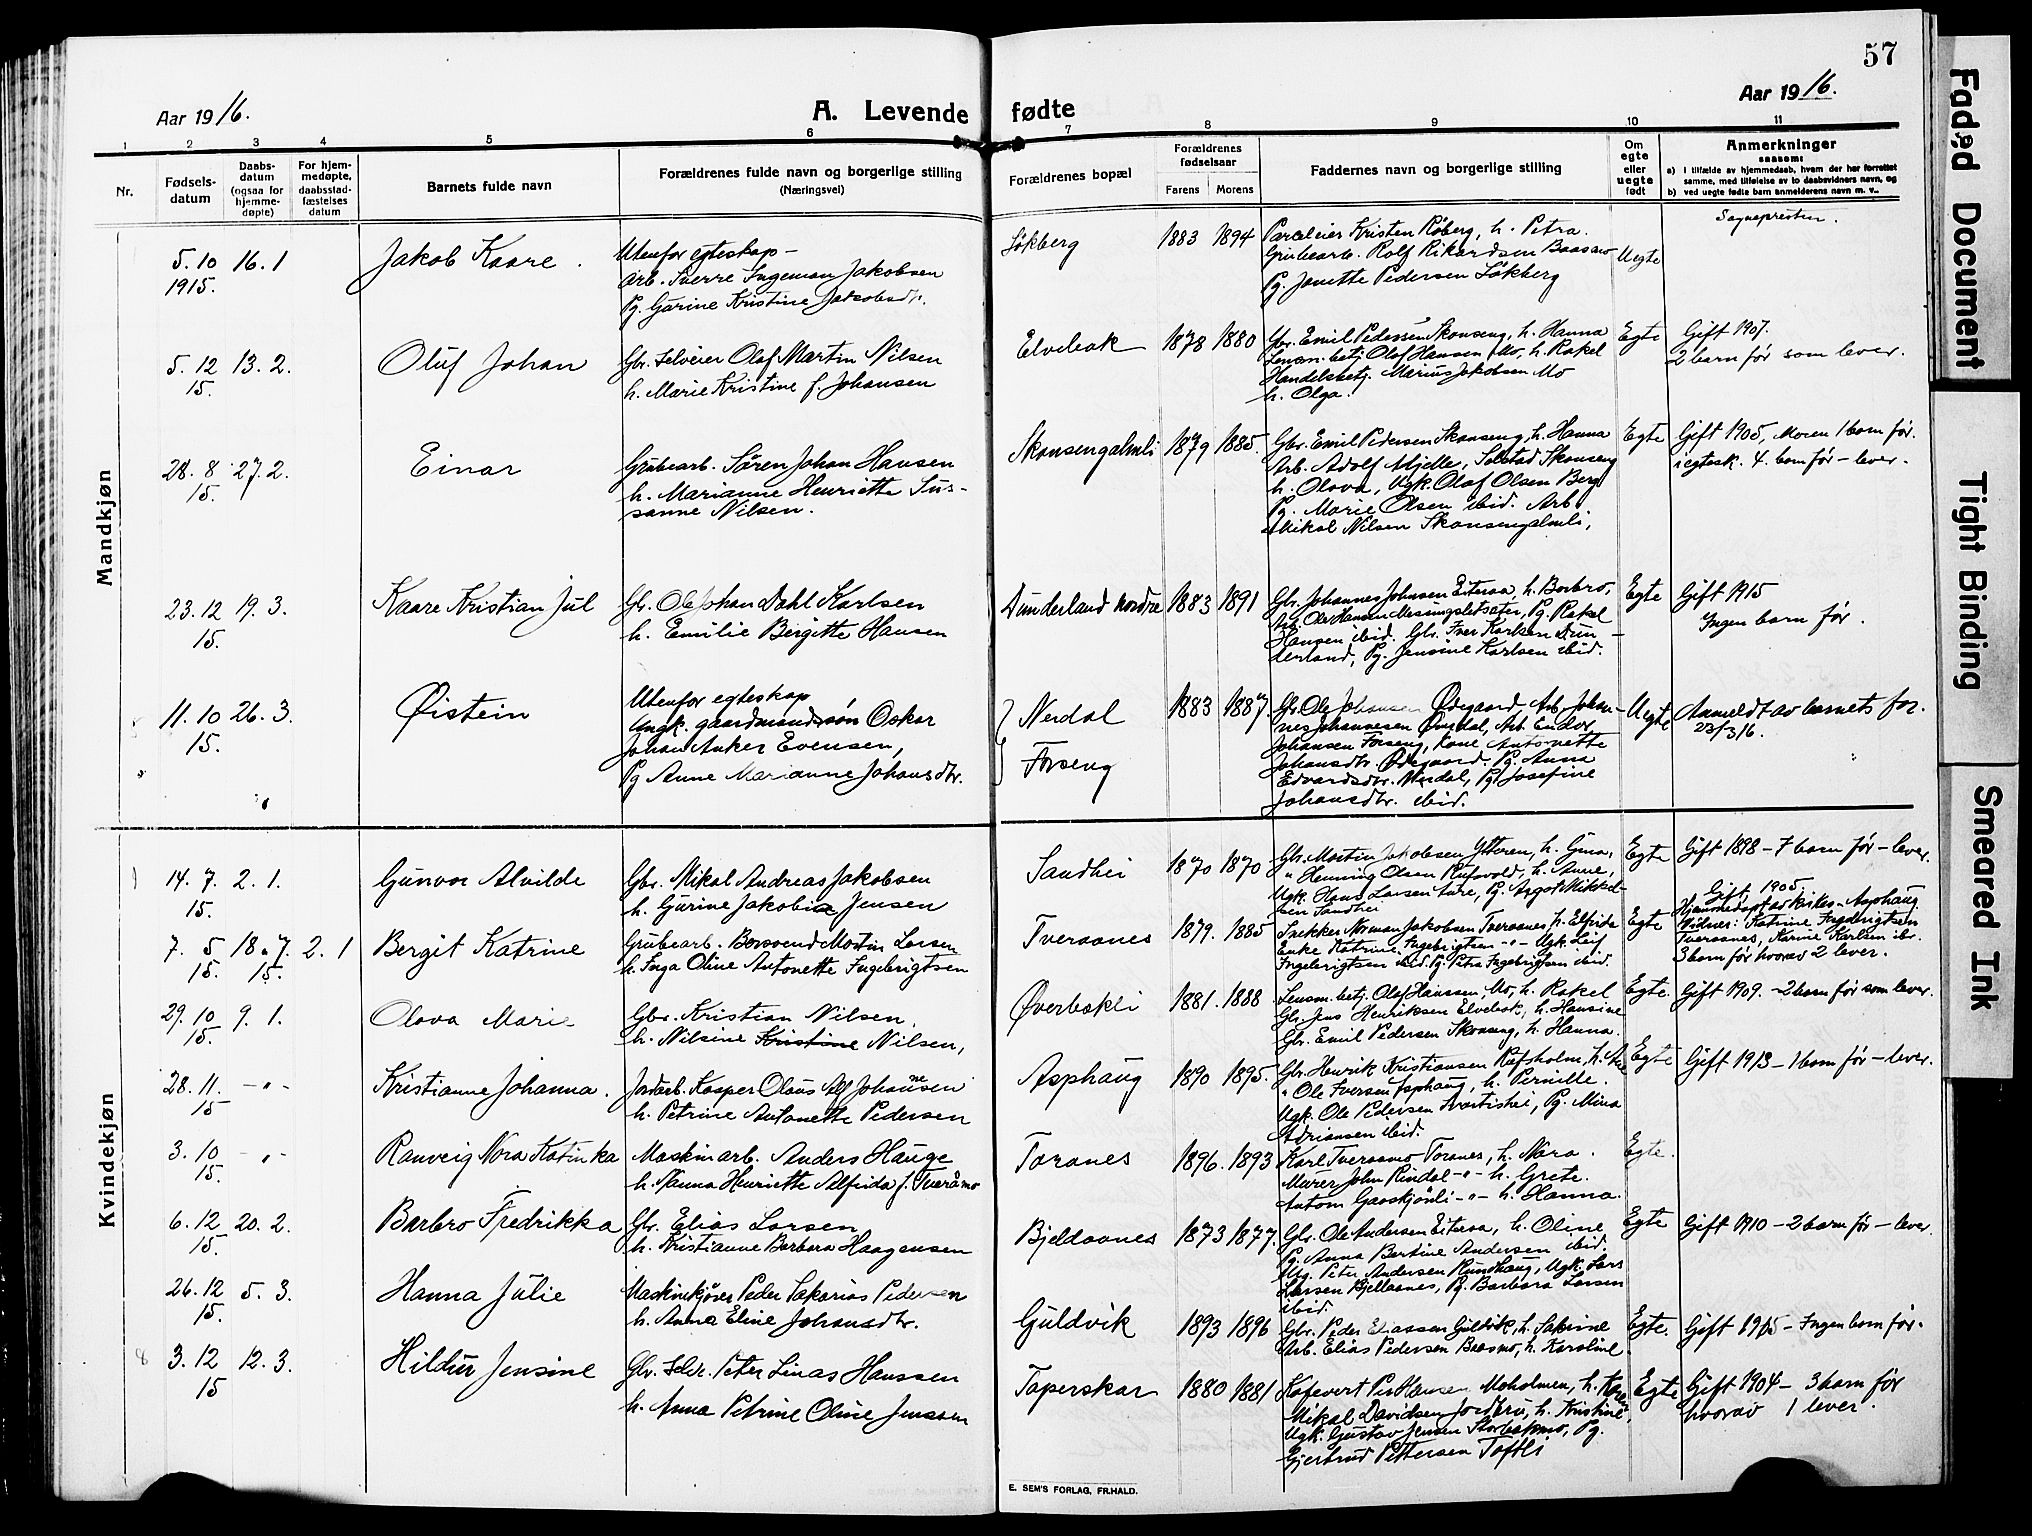 57
Aar 1916.
A. Levende fødte
Aar 1916.
1 2 3 4 5 6 7 8 9 10 11
Nr.
Fødsels-
datum
Daabs-
datum
(ogsaa for
hjemme-
døpte)
For hjem-
medøpte,
daabsstad-
fæstelses
datum
Barnets fulde navn
Forældrenes fulde navn og borgerlige stilling
(Næringsvei)
Forældrenes bopæl
Forældrenes
fødselsaar
Farens Morens
Faddernes navn og borgerlige stilling
Om
egte
eller
uegte
født
Anmerkninger
saasom:
a) i tilfælde av hjemmedaab, hvem der har forrettet
samme, med tilføielse av to daabsvidners navn, og
b) ved uegte fødte barn anmelderens navn m. v.
Sogneprésten.
Mandkjøn
5. 10
1915.
16. 1
Jakob Kaare.
Utenfor egteskap –
Arb. Sverre Ingeman Jakobsen
Pg. Gurine Kristine Jakobsdtr.
Løkberg
1883 1894
Parceleier Kristen Røberg, h. Petra.
Grubearb. Rolf Rikardsen Baasmo
Pg. Janette Pedersen Løkberg
Uegte
5. 12
15.
13. 2.
Oluf Johan
Gbr. Selveier Olaf Martin Nilsen
h. Marie Kristine f. Johansen
Elvebak
1878 1880
Gbr. Emil Pedersen Skonseng, h. Hanna
Lensm. betj. Olaf Hansen Mo, h. Rakel
Handelsbetj. Marius Jakobsen Mo
h. Olga.
Egte
Gift 1907.
2 barn før som lever.
28. 8
15.
27. 2.
Einar
Grubearb. Søren Johan Hansen
h. Marianne Henriette Sus-
sanne Nilsen.
Skonsengalmli
1879 1885.
Gbr. Emil Pedersen Skonseng, h. Hanna
Arb. Adolf Mjelle, Solstad Skonseng
h. Olova, Ugk. Olaf Olsen Berg
Pg. Marie Olsen ibid. Arb.
Mikal Nilsen Skonsengalmli,
Egte
Gift 1905, Moren 1 barn før.
i egtesk. 4. barn før – lever.
23. 12
15.
19. 3.
Kaare Kristian Jul
Gbr. Ole Johan Dahl Karlsen
h. Emilie Bergitte Hansen
Dunderland nordre
1883 1891
Gbr. Johannes Johnsen Eiteraa, h. Barbro,
Ole Hansen Messingsletsæter, Pg. Rakel
Hansen ibid. Gbr. Iver Karlsen Dun-
derland, Pg. Jensine Karlsen ibid.
Egte
Gift 1915
Ingen barn før.
11. 10
15.
26. 3.
Øistein
Utenfor egteskap
Ungk. gaardmandssøn Oskar
Johan Anker Evensen,
Pg Anne Marianne Johansdtr.
Nerdal
Forseng
1883 1887
Gbr. Ole Johansen Ødegaard, Arb. Johan-
nes Johannesen Øverdal, Arb. Endor
Johansen Forseng, Kone Antonette
Johansdtr. Ødegaard. Pg. Anna
Edvardsdtr. Nerdal, Pg. Josefine
Johansdtr. ibid.
Uegte
Anmeldt av barnets far.
23/3 16.
Kvindekjøn
14. 7.
15.
2. 1.
Gunvor Alvilde
Gbr. Mikal Andreas Jakobsen
h. Gurine Jakobine Jensen
Sandhei
1870 1870
Gbr. Martin Jakobsen Ytteren, h. Gina,
" Henning Olsen Rufsvold, h. Anne,
Ugk. Hans Larsen Aure, Pg. Aagot Mikkel-
sen Sandhei
Egte
Gift 1898 – 7 barn før – lever.
7. 5
15.
18. 7.
15.
2. 1
Bergit Katrine
Grubearb. Borsvend Martin Larsen
h. Inga Oline Antonette Ingebrigtsen
Tveraanes
1879. 1885
Snekker Norman Jakobsen Tveraanes, h. Elfrida
Enke Katrine Ingebrigtsen –"– Ugk. Leif
Ingebrigtsen ibid. Pg. Petra Ingebrigtsen ibid.
Egte
Gift 1905.
Hjemmedøpt av kirkes. Asphaug
Vidner: Katrine Ingebrigtsen
Tveraanes, Karine Karlsen ibr.
3 barn før hvorav 2 lever.
29. 10
15.
9. 1.
Olava Marie
Gbr. Kristian Nilsen,
h. Nilsine Kristine Nilsen,
Øverbakli
1881. 1888
Lensm. betj. Olaf Hanssen, Mo, h. Rakel
Gbr. Jens Henriksen Elvebak, h. Hansine
Gbr. Emil Pedersen Skonseng, h. Hanna.
Egte.
Gift 1909. – 2 barn før som lever.
28. 11.
15
– " –
Kristianne Johanna.
Jordarb. Kasper Olaus Alf Johannesen
h. Petrine Antonette Pedersen
Asphaug
1890 1895.
Gbr. Henrik Kristiansen Ræfsholm, h.
" Ole Iversen Asphaug, h. Pernille.
Ugk. Ole Pedersen Svartishei, Pg. Mina
Adriansen ibid.
Egte
Gift 1913 – 1 barn før – lever.
3. 10
15.
– " –
Ranveig Nora Katinka
Maskinarb. Anders Hauge
h. Nanna Henriette Alfrida f. Tveråmo
Toranes
1896. 1893
Karl Tveraamo Toranes, h. Nora.
Murer John Rindal –"– h. Grete.
Antom Gaaskjönli –"– h. Hanna.
Egte.
6. 12
15.
20. 2.
Barbro Fredrikka
Gbr. Elias Larsen
h. Kristianne Barbara Haagensen
Bjeldaanes
1873 1877.
Gbr. Ole Andersen Eiteraa, h. Oline
Pg. Anna Bertine Andersen ibid.
Peter Andersen Rundhaug, Ugk. Lars
Larsen Bjellaanes, Pg. Barbara Larsen
ibid.
Egte
Gift 1910 – 2 barn før – lever
26. 12
15.
5. 3.
Hanna Julie
Maskinkjører Peder Sakarias Pedersen
h. Anna Eline Johansdtr.
Guldvik
1893 1896
Gbr. Peder Eliassen Guldvik, h. Sakrine
Arb. Elias Pedersen Baasmo, h. Karoline.
Egte.
Gift 1915 – Ingen barn før.
8
3. 12
15
12. 3.
Hildur Jensine
Gbr. Selv. Peter Linas Hanssen
h. Anna Petrine Oline Jenssen
Taperskar
1880 1881
Kafevert Per Hansen Moholmen, h.
Mikal Davidsen Jordbru, h. Kristine,
Ugk. Gustav Jensen Storbakmo, Pg.
Gjertrud Pettersen Tofthei
Egte
Gift 1904 – 3 barn før
hvorav 1 lever.
E. SEM'S FORLAG, FR.HALD.
Faded Document
Tight Binding
Smeared Ink